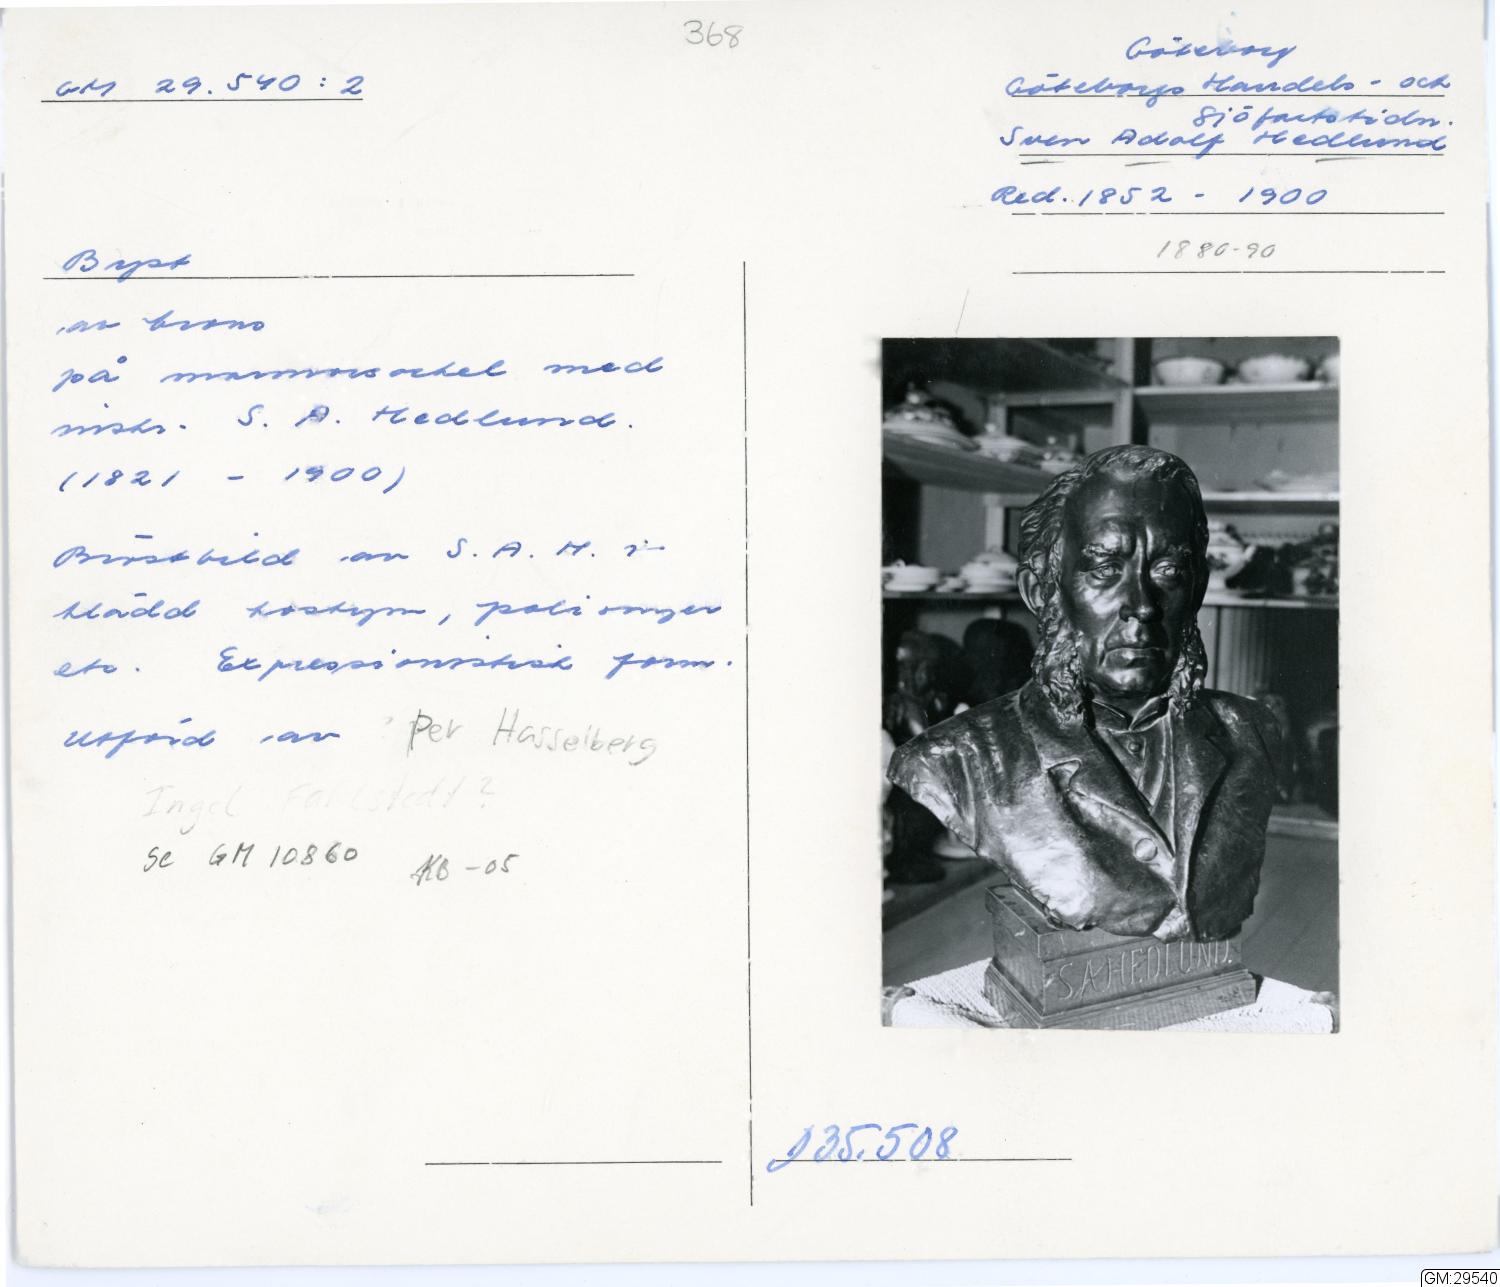 368
GM 29.540:2
Göteborg
Göteborgs Handels- och
Sjöfartstidn.
Sven Adolf Hedlund
Red. 1852 - 1900
1880-90
Byst
av brons
på marmorsockel med
inskr. S. A. Hedlund.
(1821 - 1900)
Bröstbild av S. A. H. i
klädd kostym, polisonger
etc. Expressionistisk form.
Utförd av Per Hasselberg
Ingel Fallstedt?
Se GM 10860 KB -05
S.A.HEDLUND.
135.508
GM:29540